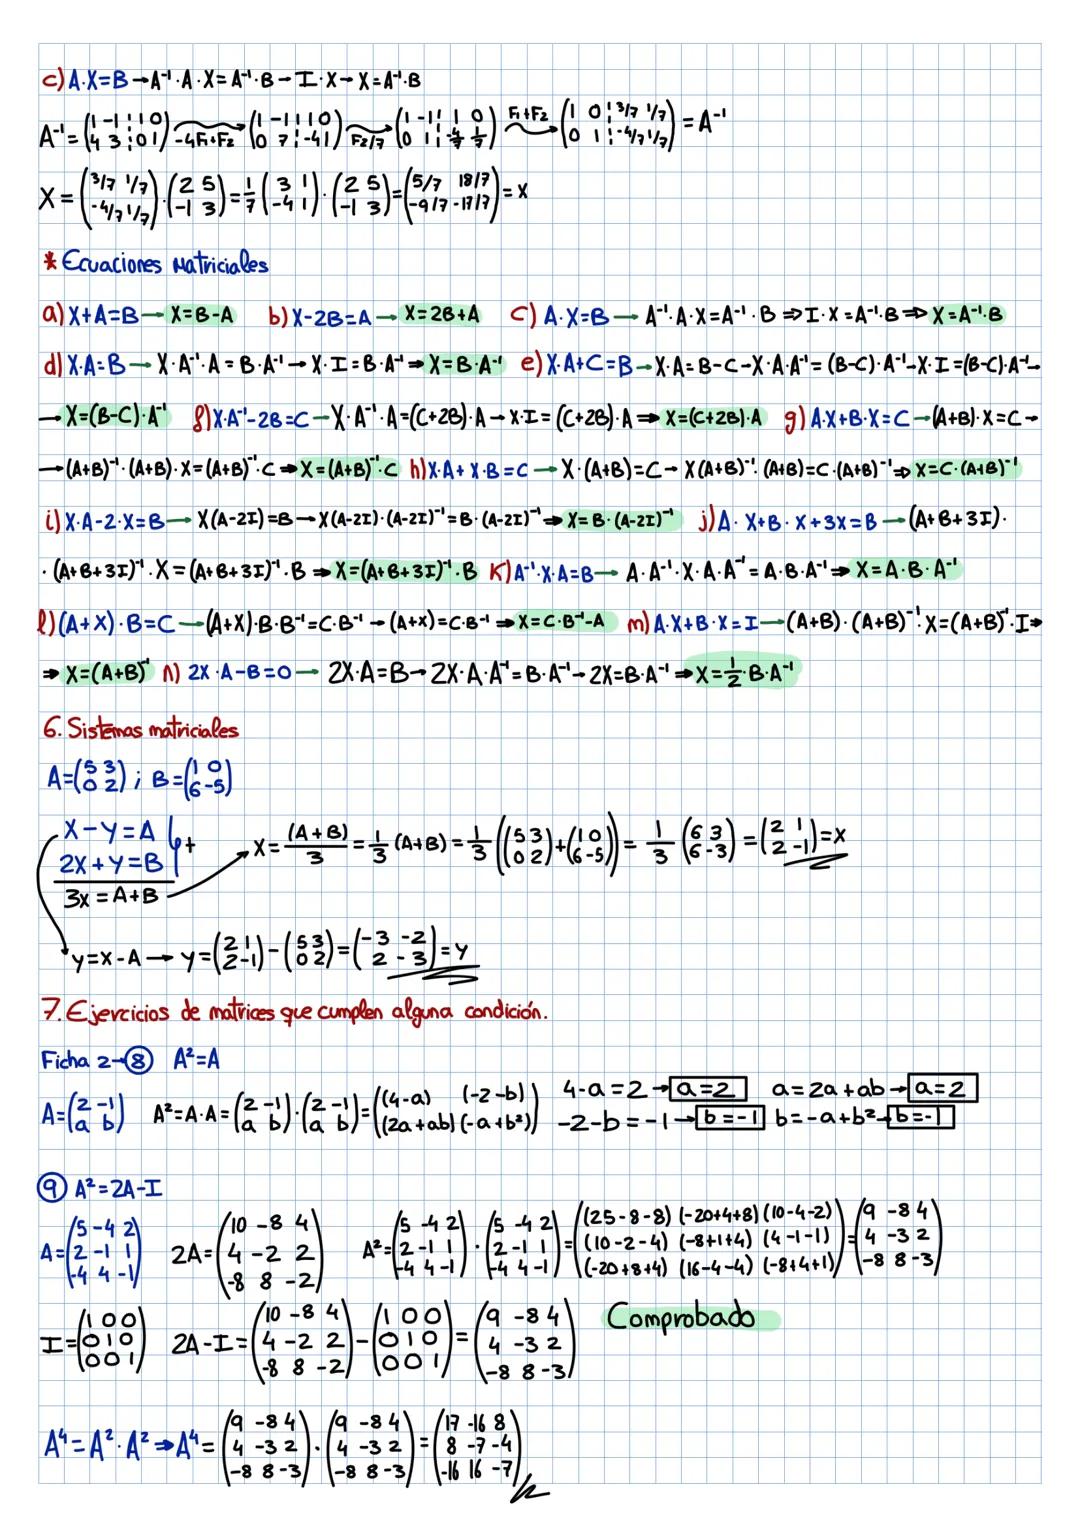 c) A·X=B → A⁻¹·A·X=A⁻¹·B → I·X → X=A⁻¹·B
A⁻¹= (1 -1 ¦ 1 0 / 4 3 ¦ 0 1) -4F₁+F₂ → (1 -1 ¦ 1 0 / 0 7 ¦ -4 1) F₂/7 → (1 -1 ¦ 1 0 / 0 1 ¦ -4/7 1/7) F₁+F₂ → (1 0 ¦ 3/7 1/7 / 0 1 ¦ -4/7 1/7) = A⁻¹
X = (3/7 1/7 / -4/7 1/7) · (2 5 / -1 3) = 1/7 (3 1 / -4 1) · (2 5 / -1 3) = (5/7 18/7 / -9/7 -17/7) = X
* Ecuaciones Matriciales
a) X+A=B → X=B-A b) X-2B=A → X=2B+A c) A·X=B → A⁻¹·A·X=A⁻¹·B ⇒ I·X=A⁻¹·B ⇒ X=A⁻¹·B
d) X·A=B → X·A⁻¹·A=B·A⁻¹ → X·I=B·A⁻¹ ⇒ X=B·A⁻¹ e) X·A+C=B → X·A=B-C → X·A·A⁻¹=(B-C)·A⁻¹ → X·I=(B-C)·A⁻¹ →
→ X=(B-C)·A⁻¹ f) X·A⁻¹-2B=C → X·A⁻¹·A=(C+2B)·A → X·I=(C+2B)·A ⇒ X=(C+2B)·A g) A·X+B·X=C → (A+B)·X=C →
→ (A+B)⁻¹·(A+B)·X=(A+B)⁻¹·C ⇒ X=(A+B)⁻¹·C h) X·A+X·B=C → X·(A+B)=C → X(A+B)⁻¹·(A+B)=C·(A+B)⁻¹ ⇒ X=C·(A+B)⁻¹
i) X·A-2·X=B → X(A-2I)=B → X(A-2I)·(A-2I)⁻¹=B·(A-2I)⁻¹ ⇒ X=B·(A-2I)⁻¹ j) A·X+B·X+3X=B → (A+B+3I)·
·(A+B+3I)⁻¹·X=(A+B+3I)⁻¹·B ⇒ X=(A+B+3I)⁻¹·B K) A⁻¹·X·A=B → A·A⁻¹·X·A·A⁻¹=A·B·A⁻¹ ⇒ X=A·B·A⁻¹
l) (A+X)·B=C → (A+X)·B·B⁻¹=C·B⁻¹ → (A+X)=C·B⁻¹ ⇒ X=C·B⁻¹-A m) A·X+B·X=I → (A+B)·(A+B)⁻¹·X=(A+B)⁻¹·I ⇒
⇒ X=(A+B)⁻¹ n) 2X·A-B=0 → 2X·A=B → 2X·A·A⁻¹=B·A⁻¹ → 2X=B·A⁻¹ ⇒ X=1/2·B·A⁻¹
6. Sistemas matriciales
A=(5 3 / 0 2) ; B=(1 0 / 6 -5)
X-Y=A
2X+Y=B } +
3X=A+B
X= (A+B)/3 = 1/3 (A+B) = 1/3 ((5 3 / 0 2)+(1 0 / 6 -5)) = 1/3 (6 3 / 6 -3) = (2 1 / 2 -1) = X
y=X-A → y=(2 1 / 2 -1) - (5 3 / 0 2) = (-3 -2 / 2 -3) = Y
7. Ejercicios de matrices que cumplen alguna condición.
Ficha 2 → ⑧ A²=A
A=(2 -1 / a b) A²=A·A=(2 -1 / a b)·(2 -1 / a b)=((4-a) (-2-b) / (2a+ab) (-a+b²))
4-a=2 → a=2 a=2a+ab → a=2
-2-b=-1 → b=-1 b=-a+b² → b=-1
⑨ A²=2A-I
A=(5 -4 2 / 2 -1 1 / -4 4 -1) 2A=(10 -8 4 / 4 -2 2 / -8 8 -2) A²=(5 -4 2 / 2 -1 1 / -4 4 -1)·(5 -4 2 / 2 -1 1 / -4 4 -1)=((25-8-8) (-20+4+8) (10-4-2) / (10-2-4) (-8+1+4) (4-1-1) / (-20+8+4) (16-4-4) (-8+4+1))=(9 -8 4 / 4 -3 2 / -8 8 -3)
I=(1 0 0 / 0 1 0 / 0 0 1) 2A-I=(10 -8 4 / 4 -2 2 / -8 8 -2)-(1 0 0 / 0 1 0 / 0 0 1)=(9 -8 4 / 4 -3 2 / -8 8 -3) Comprobado
A⁴=A²·A² ⇒ A⁴=(9 -8 4 / 4 -3 2 / -8 8 -3)·(9 -8 4 / 4 -3 2 / -8 8 -3)=(17 -16 8 / 8 -7 -4 / -16 16 -7)